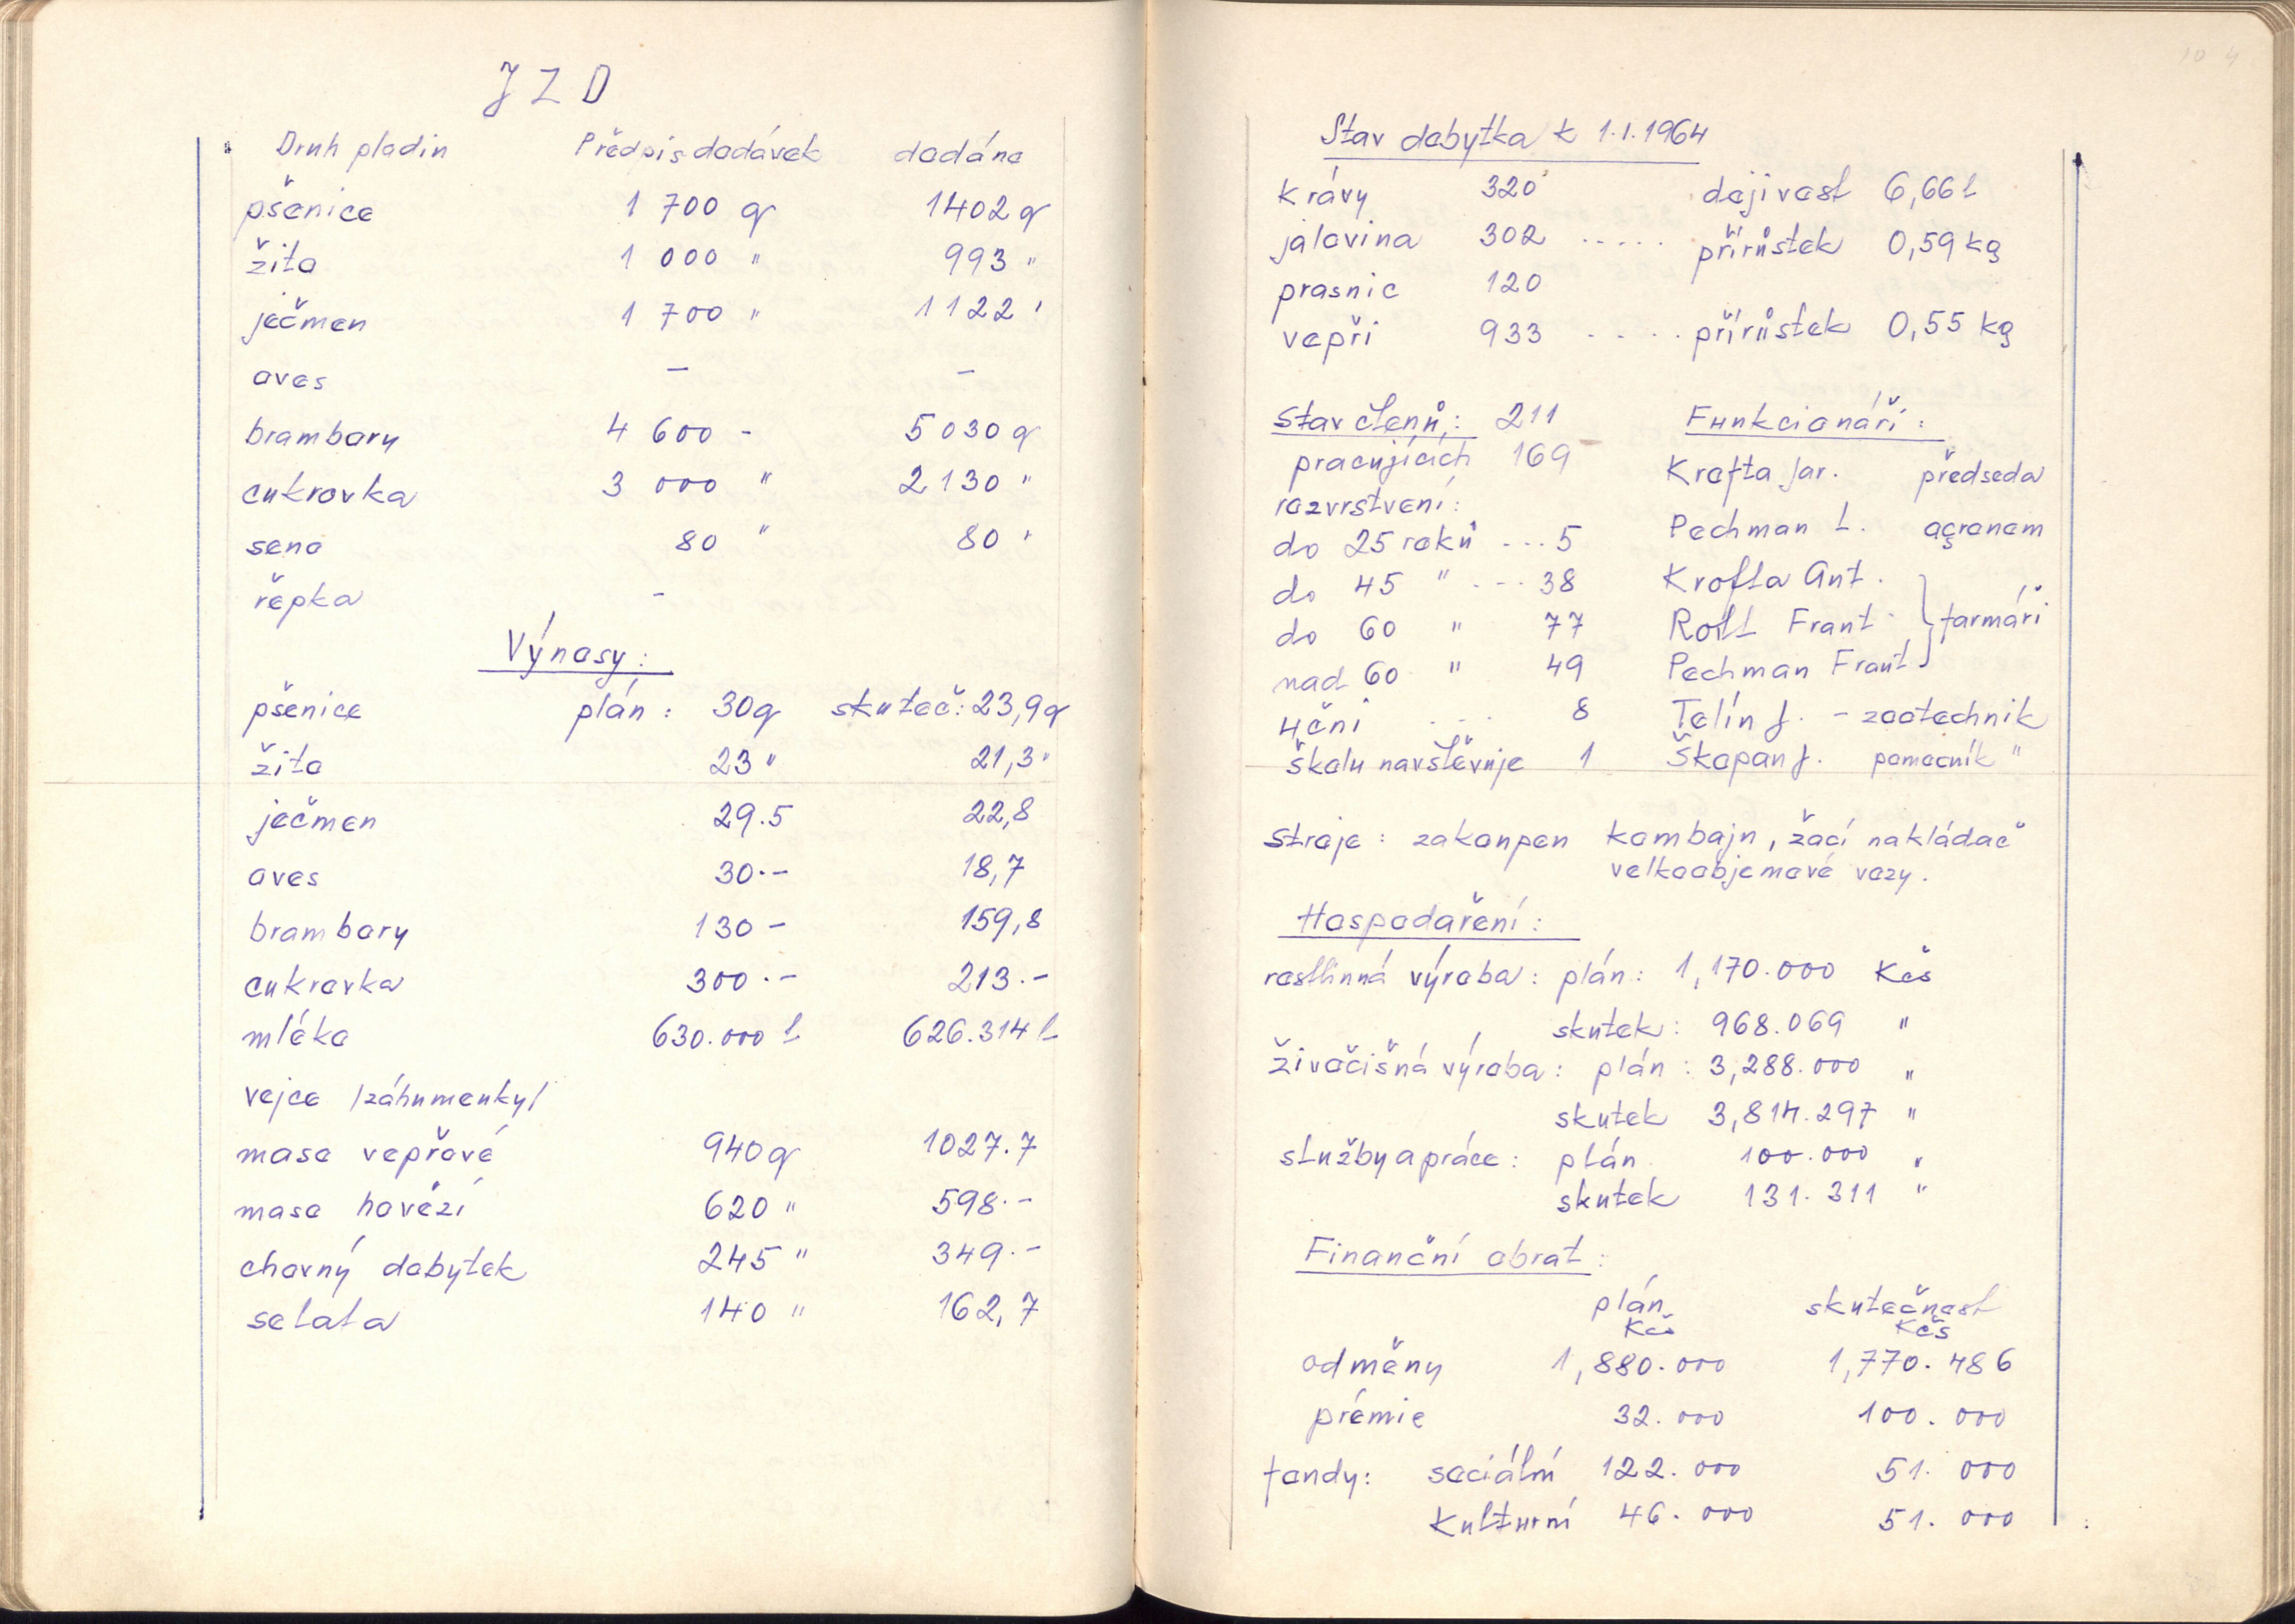 JZD
Druh plodin Předpis dodávek dodáno
pšenice 1 700 q 1402 q
žito 1 000 " 993 "
ječmen 1 700 " 1122 "
oves – –
brambory 4 600 - 5030 q
cukrovka 3 000 " 2130 "
seno 80 " 80 "
řepka -
Výnosy:
pšenice plán: 30q skuteč: 23,9q
žito 23 " 21,3 "
ječmen 29.5 22,8
oves 30.- 18,7
brambory 130 - 159,8
cukrovka 300.- 213.-
mléko 630.000 l 626.314 l
vejce /záhumenky/
maso vepřové 940 q 1027.7
maso hovězí 620 " 598.-
chovný dobytek 245 " 349.-
selata 140 " 162,7
Stav dobytka k 1.1.1964
krávy 320 dojivost 6,66 l
jalovina 302 ..... přírůstek 0,59 kg
prasnic 120
vepři 933 ..... přírůstek 0,55 kg
Stav členů: 211 Funkcionáři:
pracujících 169 Krofta Jar. předseda
rozvrstvení:
do 25 roků ... 5 Pechman L. agronom
do 45 " ... 38 Krofta Ant.
do 60 " 77 Rott Frant. } farmáři
nad 60 " 49 Pechman Frant
učni ... 8 Telín J. - zootechnik
školu navštěvuje 1 Škopan J. pomocník "
Stroje: zakoupen kombajn, žací nakládač
velkoobjemové vozy.
Hospodaření:
rostlinná výroba: plán: 1,170.000 Kčs
skutek: 968.069 "
živočišná výroba: plán: 3,288.000 "
skutek 3,814.297 "
služby a práce: plán 100.000 "
skutek 131.311 "
Finanční obrat:
plán skutečnost
Kčs Kčs
odměny 1,880.000 1,770.486
prémie 32.000 100.000
fondy: sociální 122.000 51.000
Kulturní 46.000 51.000